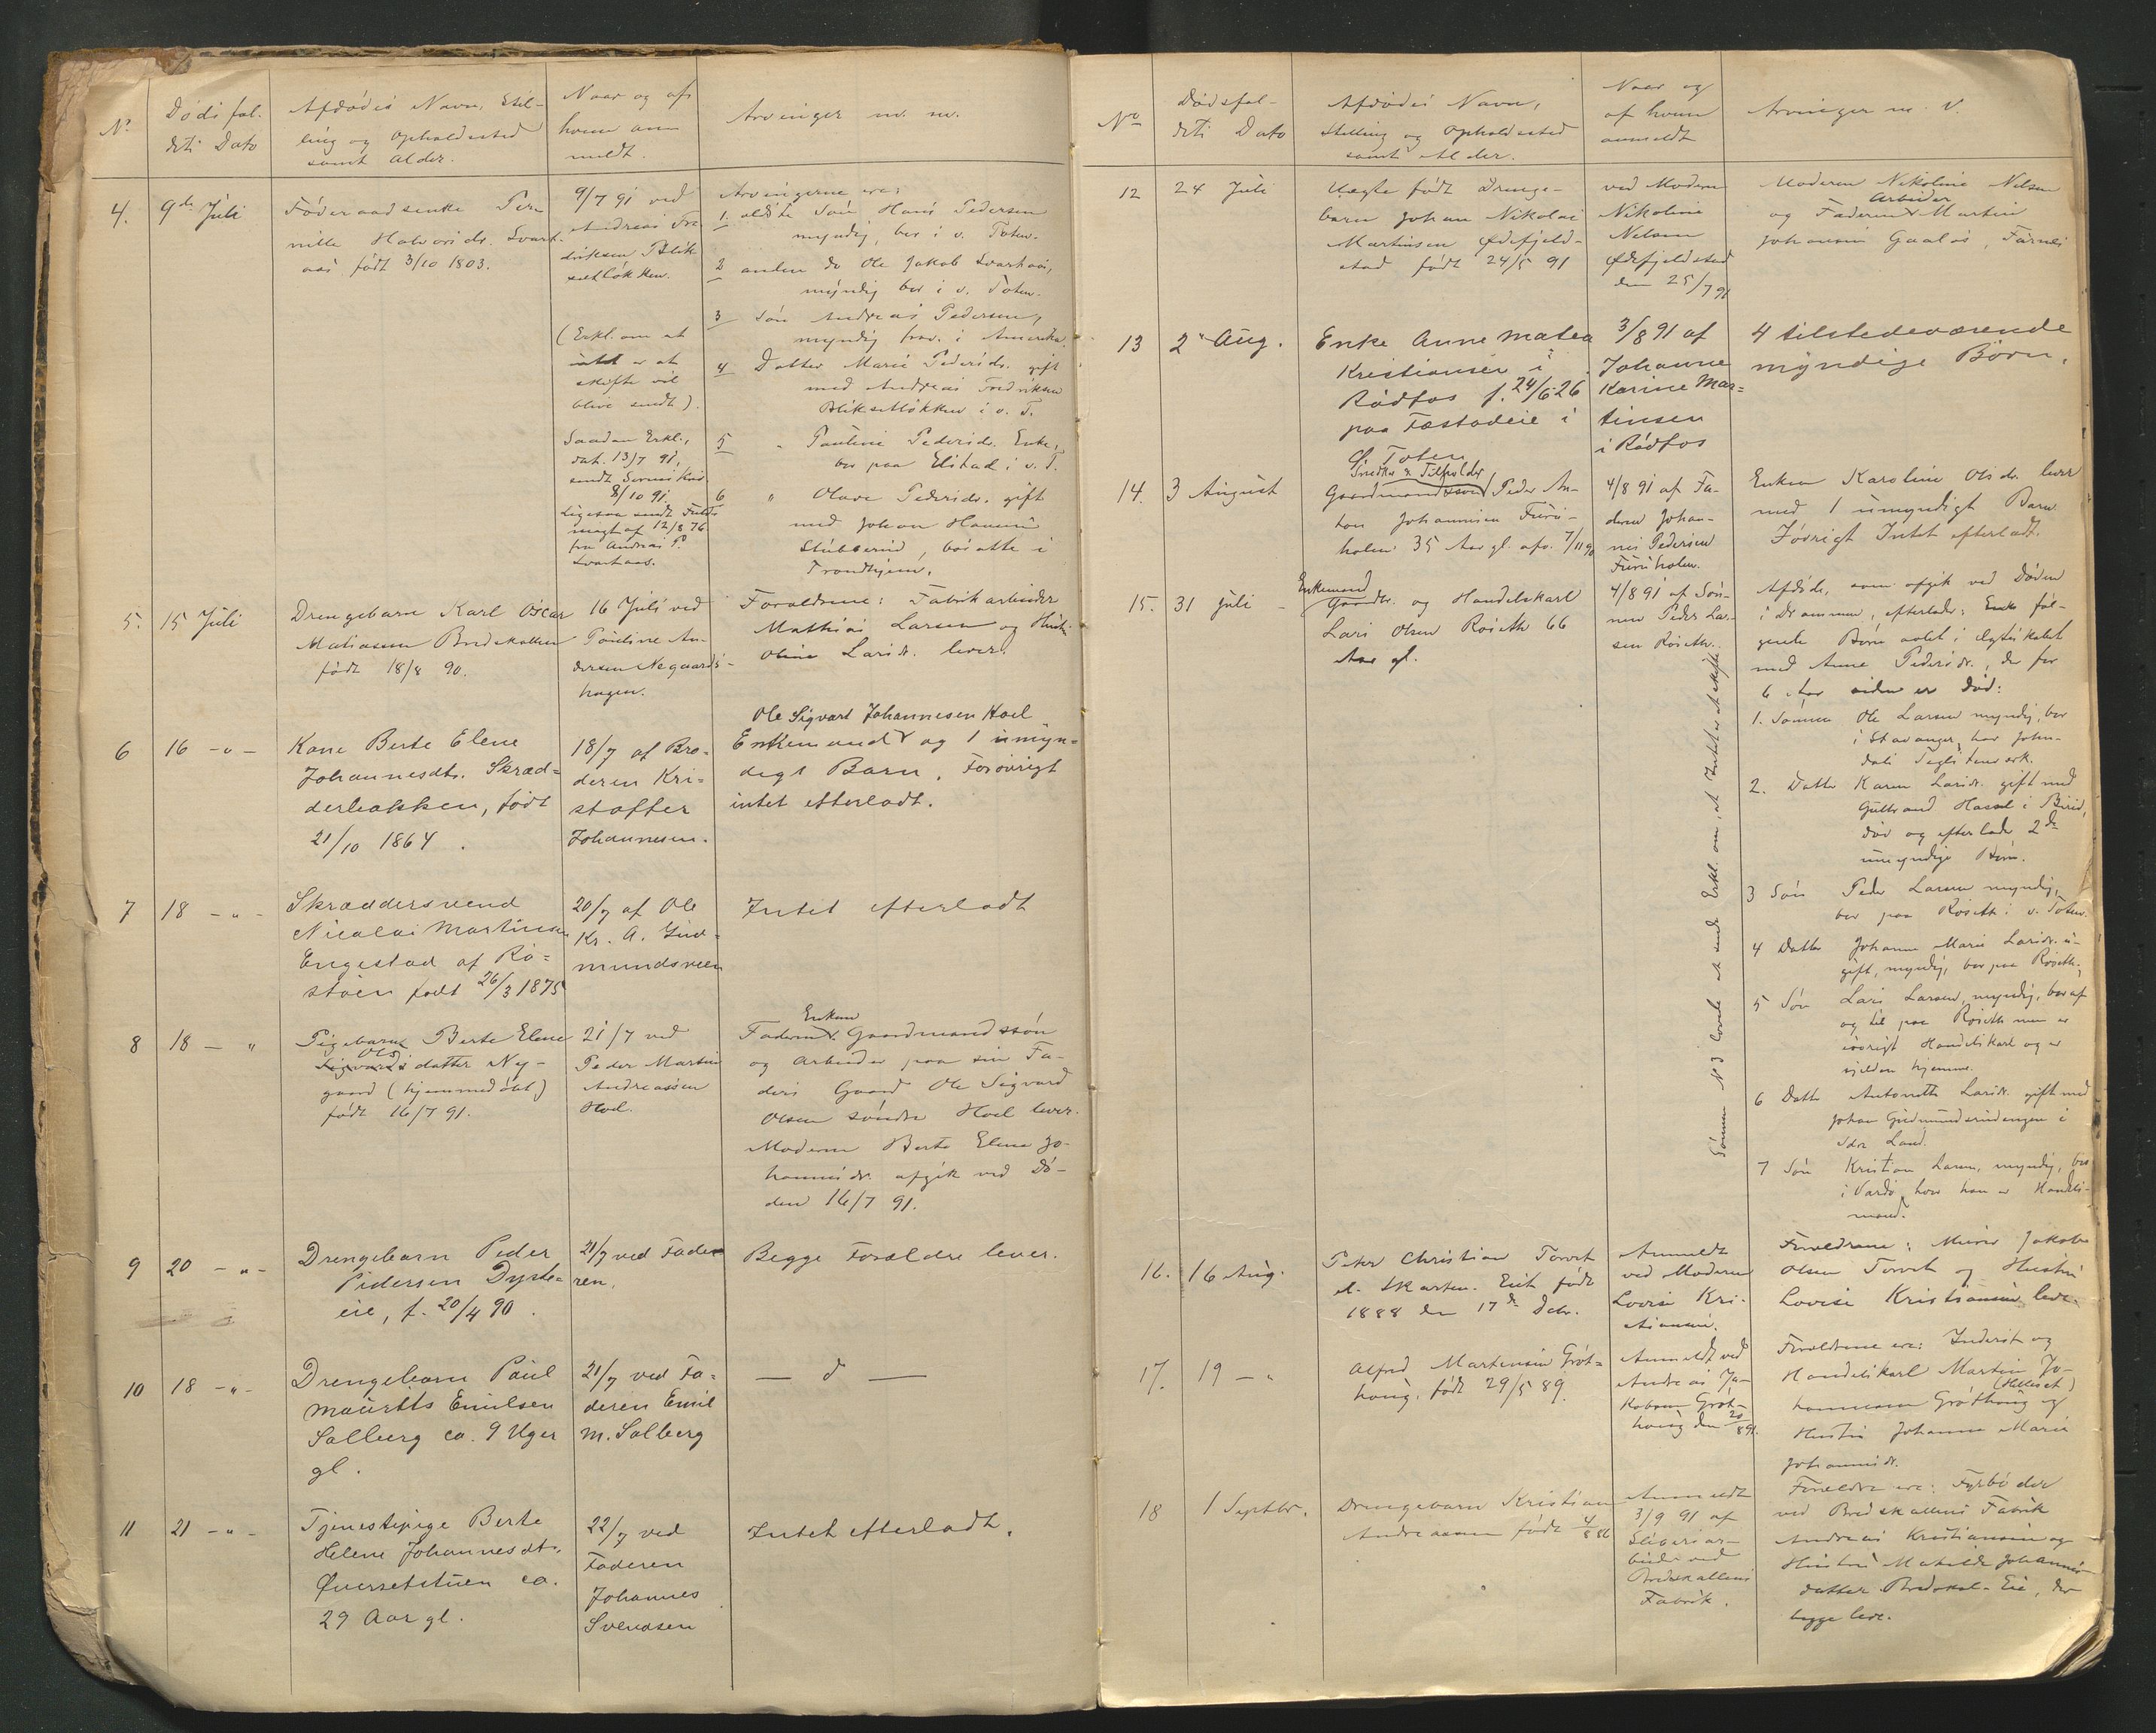 No
Dødsfal-
dets Dato
Afdødes Navn, Stil-
ling og Opholdssted
samt Alder.
Naar og af
hvem an-
meldt.
Arvinger m. m.
4.
9de Juli
Føderaadsenke Per-
nille Halvorsdr. Svart-
aas født 3/10 1803.
9/7 91 ved
Andreas Fre-
driksen Blik-
setløkken.
(Erkl. om at
intet er at
skifte vil
blive sendt).
Saadan Erkl.,
dat. 13/7 91,
sendt Sorenskriv.
8/10 91.
Ligesaa sendt Fuld-
magt af 12/8 76
fra Andreas P.
Svartaas.
Arvingerne ere:
1. ældste Søn Hans Pedersen
myndig, bor i v. Toten.
2 anden do Ole Jakob Svartaas,
myndig bor i v. Toten.
3 Søn Andreas Pedersen,
myndig frav. i Amerika.
4 Datter Marie Pedersdr. gift
med Andreas Fredriksen
Bliksetløkken i v. T.
5 " Pauline Pedersdr. Enke,
bor paa Elstad i v. T.
6 " Olave Pedersdr. gift
med Johan Hansen
Stubberud, bosatte i
Trondhjem.
5.
15 Juli
Drengebarn Karl Oscar
Mathiasen Bredskallen
født 18/8 90.
16 Juli ved
Pauline An-
dersen Negaards-
hagen.
Forældrene: Fabrikarbeider
Mathias Larsen og Hustru
Oline Larsdr. lever.
6
16 -"-
Kone Berte Elene
Johannesdtr. Skræd-
derbakken, født
21/10 1864.
18/7 af Bro-
deren Kri-
stoffer
Johannesen.
Ole Sigvart Johannesen Hoel
Enkemand og 1 umyn-
digt Barn. Forøvrigt
intet efterladt.
7
18 -"-
Skræddersvend
Nicolai Martinsen
Engestad af Rø-
støen født 26/3 1875
20/7 af Ole
Kr. A. Gud-
mundsveen
Intet efterladt
8
18 - "
Pigebarn Berte Elene
Ols
Sigvardsdatter Ny-
gaard (hjemmedøbt)
født 16/7 91.
21/7 ved
Peder Martin
Andreassen
Hoel.
Enkem
Faderen Gaardmandssøn
og arbeider paa sin Fa-
ders Gaard Ole Sigvard
Olsen søndre Hoel lever.
Moderen Berte Elene Jo-
hannesdr. afgik ved Dø-
den 16/7 91.
9
20 -"-
Drengebarn Peder
Pedersen Dyste-
eie, f. 20/4 90.
21/7 ved Fade-
ren.
Begge Forældre lever.
10
18 -"-
Drengebarn Paul
Mauritts Emilsen
Solberg ca. 9 Uger
gl.
21/7 ved Fa-
deren Emil
M. Solberg
— d —
11
21 -"-
Tjenestepige Berte
Helene Johannesdtr.
Øversetstuen ca.
29 Aar gl.
22/7 ved
Faderen
Johannes
Svendsen
Intet efterladt.
No
Dødsfal-
dets Dato
Afdødes Navn,
Stilling og Opholdssted
samt Alder.
Naar og
af hvem
anmeldt
Arvinger m. v.
12
24 Juli
Uægte født Drenge-
barn Johan Nikolai
Martinsen Ødefjeld-
stad født 24/5 91
ved Modern
Nikoline
Nelsen
Ødefjeldstad
den 25/7 91
Moderen Nikoline Nelsen
Arbeider
og Faderen Martin
Johansen Gaalås, Furnes
13
2" Aug.
Enke Anne Matea
Kristiansen i
Rødfos f. 24/6 26
paa Fæstadeie i
Ø. Toten
3/8 91 af
Johanne
Karine Mar-
tinsen
i Rødfos
4 tilstedeværende
myndige Børn.
14.
3 August
Snedker & Tilholder
Gaardmandssøn Peder An-
ton Johannesen Furu-
holen 35 Aar gl. afv. 7/11 90
4/8 91 af Fa-
deren Johan-
nes Pedersen
Furuholen.
Enken Karoline Olsdr. lever
med 1 umyndigt Barn.
Iøvrigt Intet efterladt.
15.
31 Juli
Enkemand
Gaardbr. og Handelskarl
Lars Olsen Røiseth 66
Aar gl.
4/8 91 af Søn-
nen Peder Lar-
sen Røiseth.
Sønnen No 3 lovede at sende Erkl. om, at Intet er at skifte
Afdøde, som afgik ved Døden
i Drammen, efterlader: Enke føl-
gende Børn avlet i Ægteskabet
med Anne Pedersdr., der for
6 Aar siden er død:
1. Sønnen Ole Larsen myndig, bor
i Stavanger, har John-
dals Teglstensværk.
2. Datter Karen Larsdr. gift med
Gulbrand Hassel i Birid,
død og efterlader 2de
umyndige Børn.
3 Søn Peder Larsen myndig,
bor paa Røiseth i v. Toten.
4 Datter Johanne Marie Larsdr. u-
gift, myndig, bor paa Røiseth,
5 Søn Lars Larsen, myndig, bor af
og til paa Røiseth men er
iøvrigt Handelskarl og er
sjelden hjemme.
6 Datter Antonette Larsdr. gift med
Johan Gudmundsrudengen i
Sdre Land.
7 Søn Kristian Larsen, myndig, bor
i Vardø, hvor han er Handels-
mand.
16.
16 Aug.
Peter Christian Torvet
el. Skarten. Eiet født
1888 den 17de Debr.
Anmeldt
ved Moderen
Lovise Kri-
stiansen.
Forældrene: Murer Jakob
Olsen Torvet og Hustru
Lovise Kristiansen lever.
17.
19 -"
Alfred Martensen Grøt-
haug. født 29/5 89.
Anmeldt ved
Andreas Ja-
kobsen Grøt-
haug den 20/8 91.
Forældrene ere: Inderst og
Handelskarl Martin Jo-
(Helleset)
hannesen Grøthaug og
Hustru Johanne Marie
Johannesdr.
18
1 Septbr.
Drengebarn Kristian
Andreassen født 4/8 86
Anmeldt
3/9 91 af
Sliberiar-
beider ved
Bredskallens
Fabrik.
Forældre ere: Fyrbøder
ved Bredskallens Fabrik
Andreas Kristiansen og
Hustru Matilde Johannes-
datter Bredskal-Eie, der
begge lever.